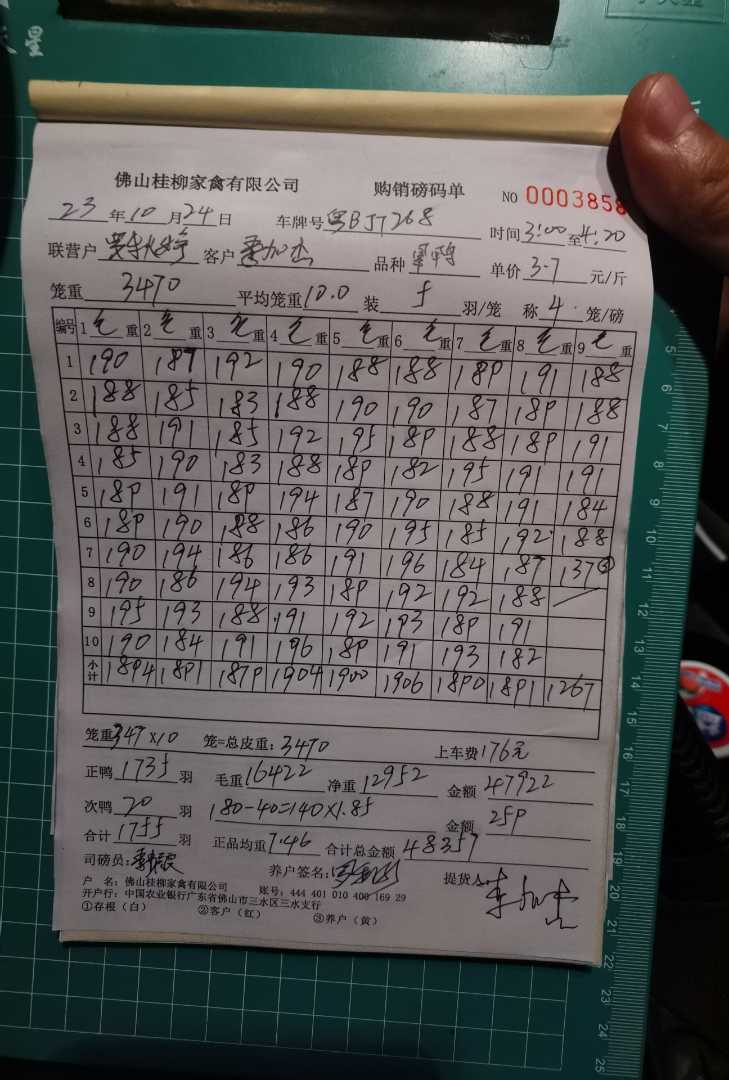 佛山桂柳家禽有限公司 购销磅码单 NO 0003858
23 年 10 月 24 日 车牌号 粤BJT268 时间 3:00 至 4:20
联营户 客户 李加杰 品种 单价 3.7 元/斤
笼重 3470 平均笼重 10.0 装 5 羽/笼 称 4 笼/磅
编号 1 毛重 2 毛重 3 毛重 4 毛重 5 毛重 6 毛重 7 毛重 8 毛重 9 毛重
1 190 187 192 190 188 188 189 191 188
2 188 185 183 188 190 190 187 189 188
3 188 191 185 192 195 189 188 189 191
4 185 190 183 188 189 182 195 191 191
5 189 191 189 194 187 190 188 191 184
6 189 190 188 186 190 195 185 192 188
7 190 194 186 186 191 196 184 187 137③
8 190 186 194 193 189 192 192 188
9 195 193 188 191 192 193 189 191
10 190 184 191 196 189 191 193 182
小计 1894 1891 1879 1904 1900 1906 1890 1891 1267
笼重 347×10 笼=总皮重: 3470 上车费 176元
正鸭 1735 羽 毛重 16422 净重 12952 金额 47922
次鸭 20 羽 180-40=140×1.85 金额 259
合计 1755 羽 正品均重 7.46 合计总金额 48357
司磅员: 养户签名: 提货人: 李加杰
户 名: 佛山桂柳家禽有限公司 账号: 444 401 010 400 169 29
开户行: 中国农业银行广东省佛山市三水区三水支行
①存根 (白) ②客户 (红) ③养户 (黄)